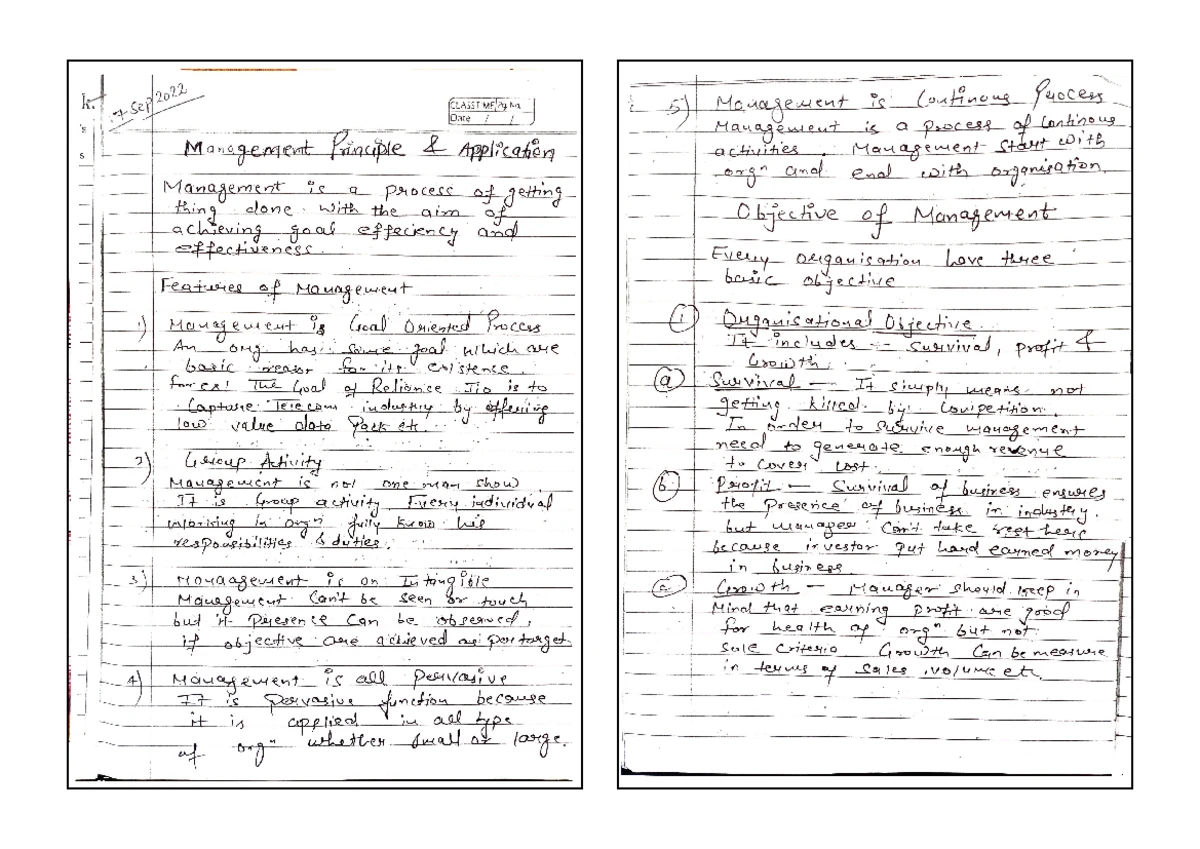 7 Sep 2022
CLASSTIME Pg No.
Date / /
Management Principle & Application
Management is a process of getting
thing done with the aim of
achieving goal effeciency and
effectiveness.
Features of Management
1) Management is Goal Oriented Process
An org has some goal which are
basic reason for its existence.
for ex! The Goal of Reliance Jio is to
Capture Telecom industry by offering
low value data Pack etc.
2) Group Activity
Management is not one man show
It is Group activity Every individual
working in orgⁿ fully know his
responsibilities & duties.
3) Management is an Intangible
Management Can't be seen or touch
but it Presence Can be observed,
if objective are achieved as per target
4) Management is all Pervasive
It is Pervasive function because
it is applied in all type
of orgⁿ whether Small or large.
5) Management is Continous Process
Management is a process of Continous
activities. Management Start with
orgⁿ and end with organisation.
Objective of Management
Every organisation have three
basic objective
(i) Organisational Objective
It includes :- Survival, profit &
Growth.
(a) Survival — It simply means not
getting killed by Competition.
In order to Survive management
need to generate enough revenue
to Cover Cost.
(b) Profit — Survival of business ensures
the Presence of business in industry.
but manager Can't take rest here
because investor put hard earned money
in business
(c) Growth — Manager should keep in
Mind that earning profit are good
for health of orgⁿ but not
sole Criteria Growth Can be measure
in terms of Sales, volume etc.